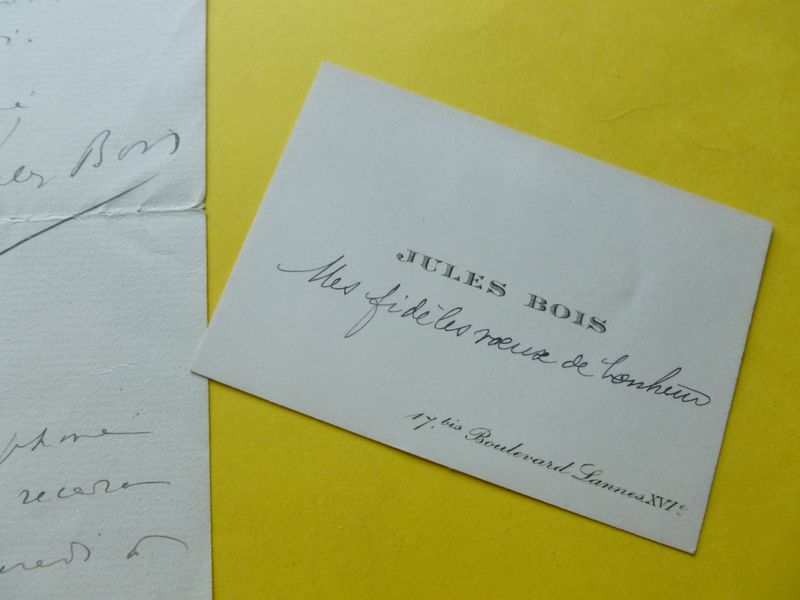 Jules Bois
phoné
recevra
JULES BOIS
Mes fidèles vœux de bonheur
17.bis Boulevard Lannes XVIe